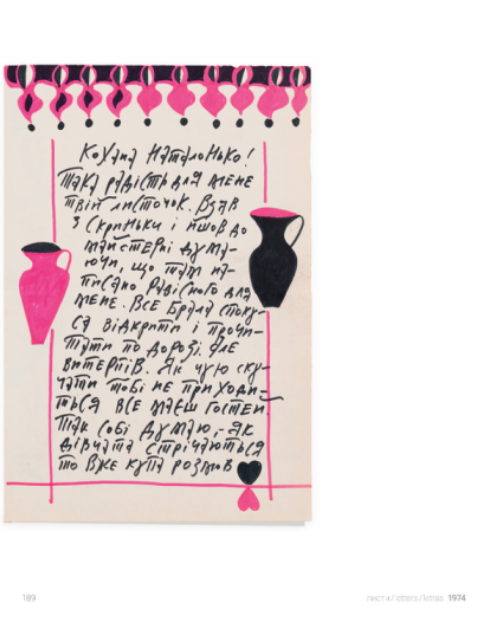 Кохана Наталонько!
Така радість для мене
твій листочок. Взяв
з скриньки і йшов до
майстерні дума-
ючи, що там на-
писано радісного для
мене. Все брала споку-
са відкрити і прочи-
тати по дорозі. Але
витерпів. Як чую ску-
чати тобі не приходи-
ться все маєш гостей.
Так собі думаю,- як
дівчата стрічаються
то вже купа розмов
189
листи/letters/letras 1974